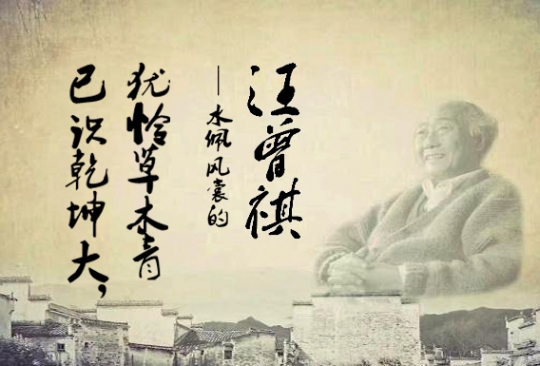 已识乾坤大，
犹怜草木青
—水佩风裳的
汪曾祺